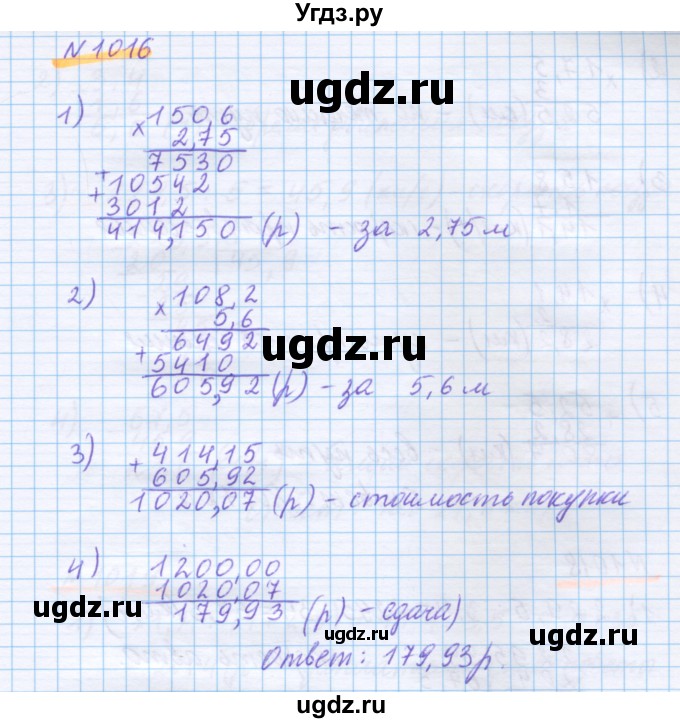 Угдз.ру
N 1016
ugdz.ru
1) ×150,6
2,75
7530
+10542
+3012
414,150 (р) - за 2,75 м
ugdz.ru
2) ×108,2
5,6
6492
+5410
605,92 (р) - за 5,6 м
ugdz.ru
3) +414,15
605,92
1020,07 (р) - стоимость покупки
4) 1200,00
1020,07
179,93 (р) - сдача)
ugdz.ru
ugdz.ru
ugdz.ru
Ответ: 179,93 р.
ugdz.ru